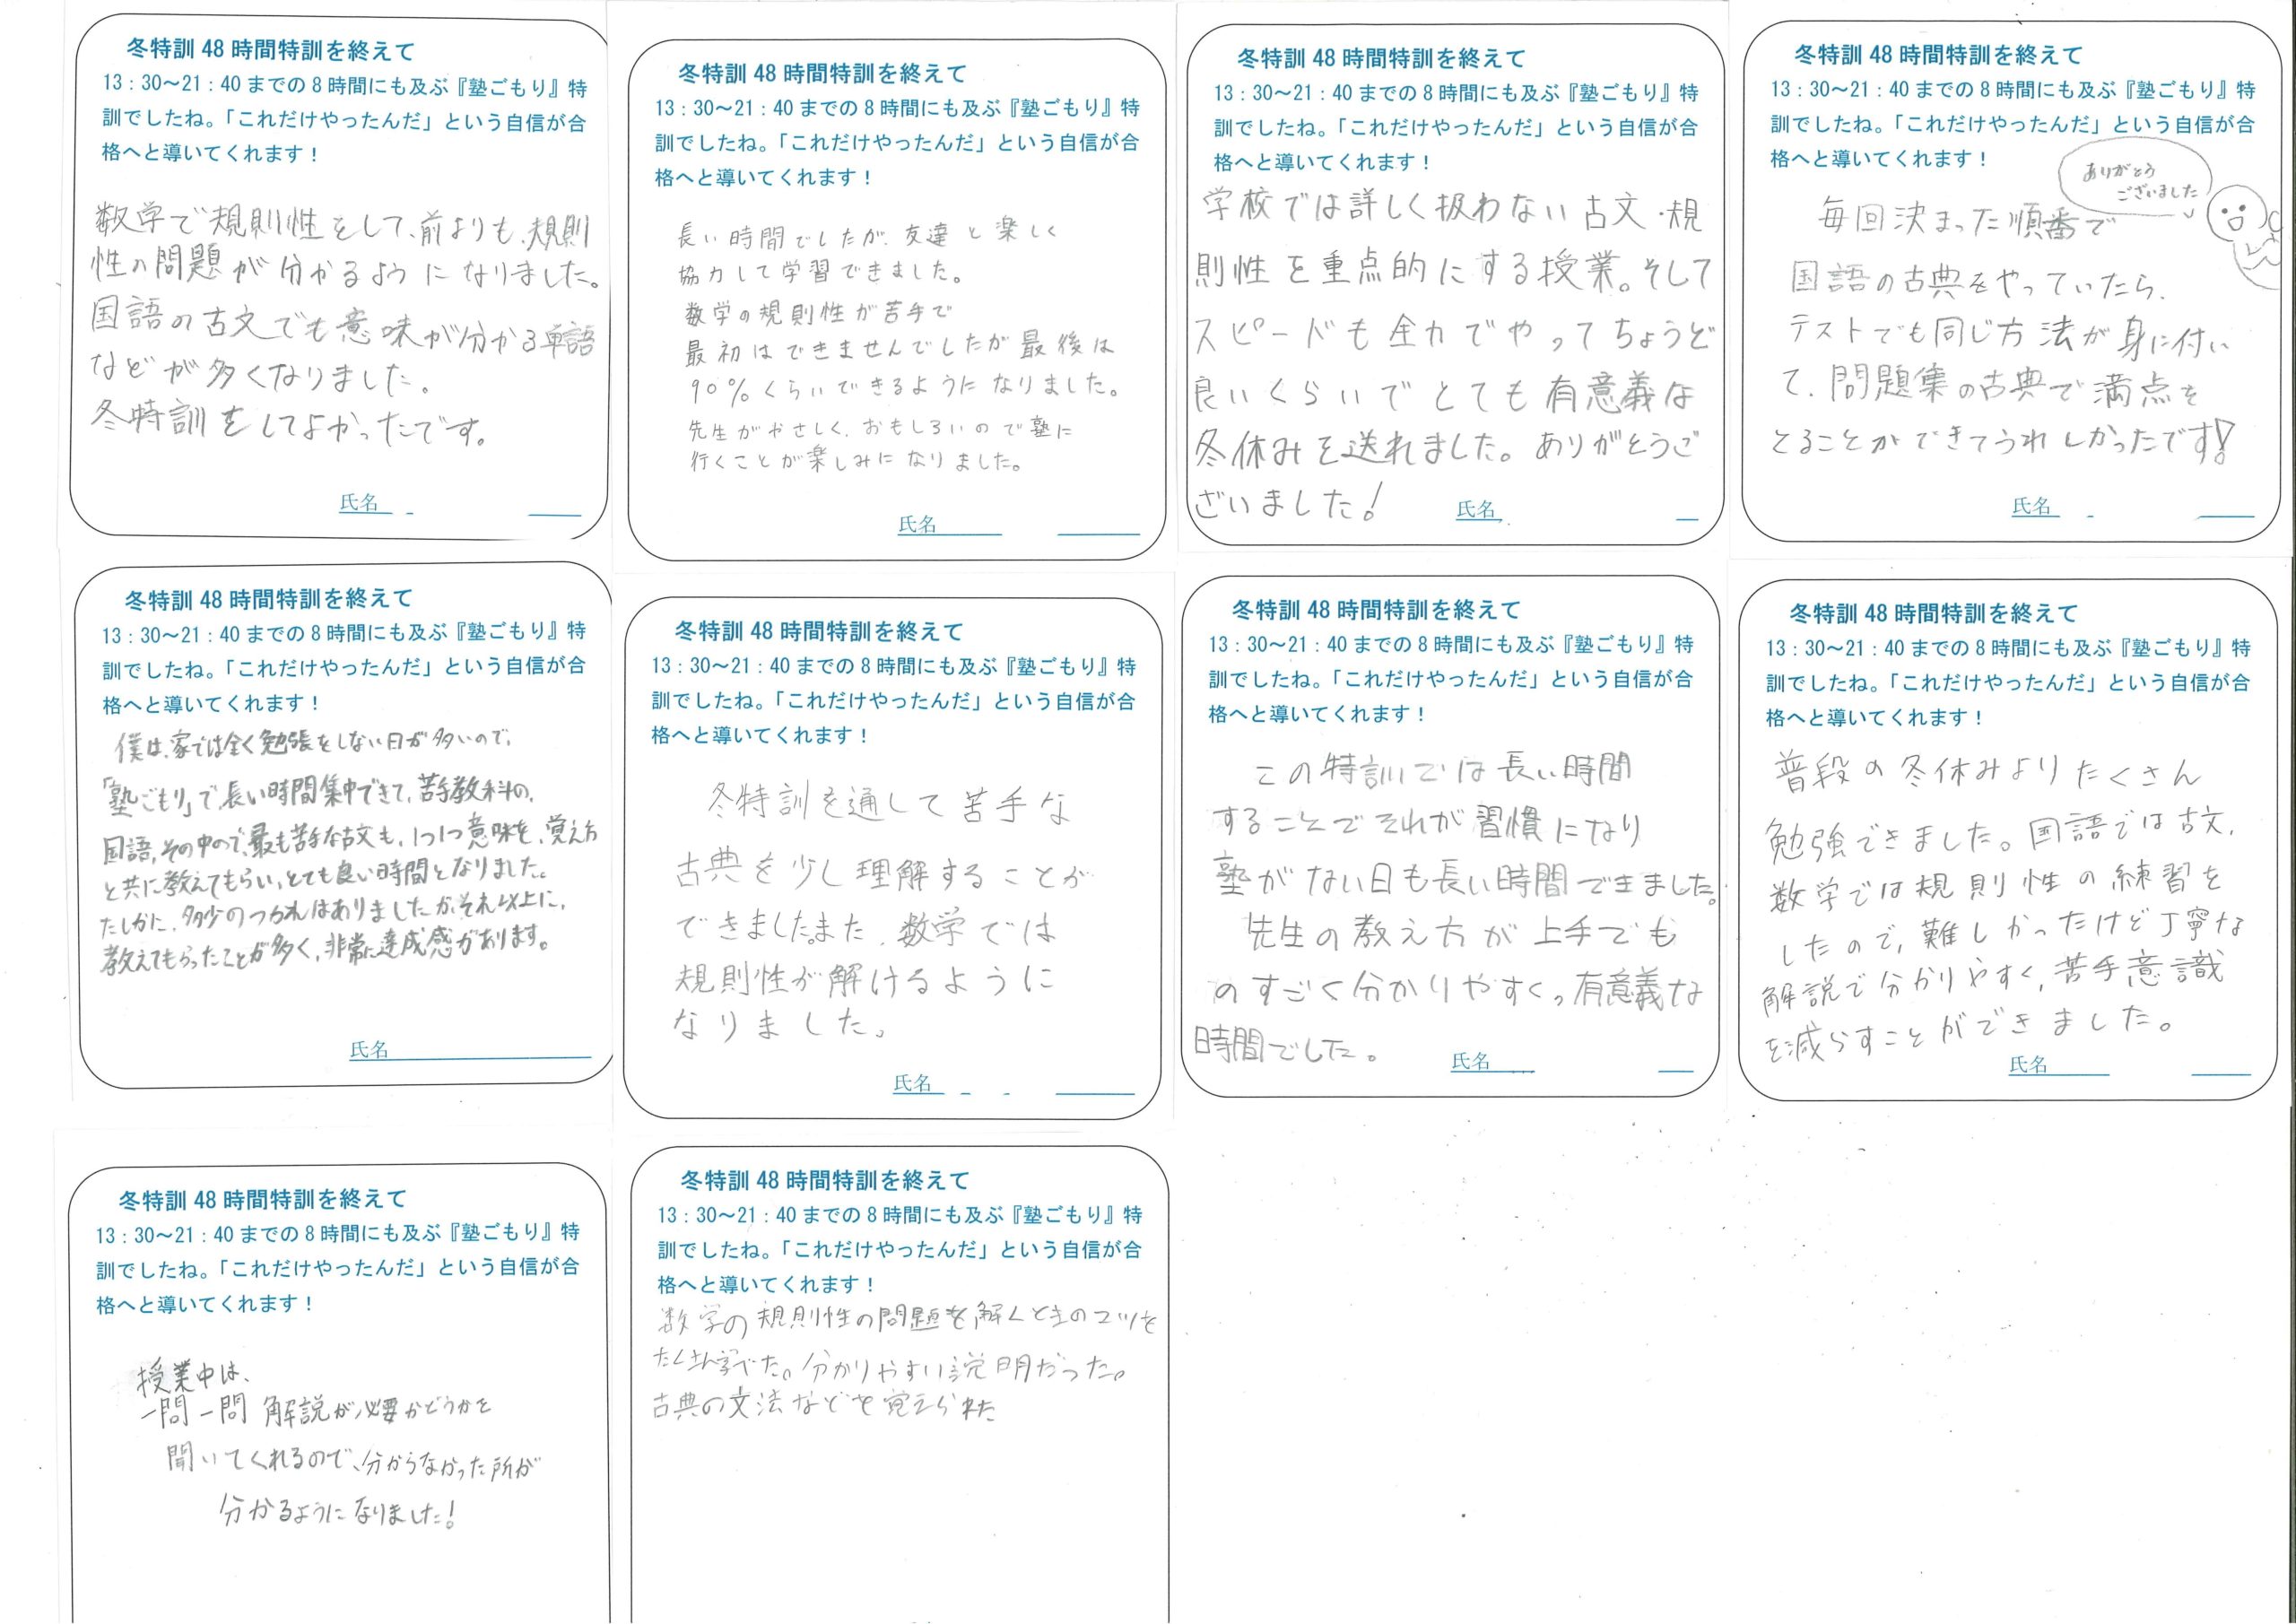 冬特訓 48 時間特訓を終えて
13：30～21：40 までの 8 時間にも及ぶ『塾ごもり』特
訓でしたね。「これだけやったんだ」という自信が合
格へと導いてくれます！
数学で規則性をして、前よりも、規則
性の問題が分かるようになりました。
国語の古文でも意味が分かる単語
などが多くなりました。
冬特訓をしてよかったです。
氏名
冬特訓 48 時間特訓を終えて
13：30～21：40 までの 8 時間にも及ぶ『塾ごもり』特
訓でしたね。「これだけやったんだ」という自信が合
格へと導いてくれます！
長い時間でしたが、友達と楽しく
協力して学習できました。
数学の規則性が苦手で
最初はできませんでしたが最後は
90%くらいできるようになりました。
先生がやさしく、おもしろいので塾に
行くことが楽しみになりました。
氏名
冬特訓 48 時間特訓を終えて
13：30～21：40 までの 8 時間にも及ぶ『塾ごもり』特
訓でしたね。「これだけやったんだ」という自信が合
格へと導いてくれます！
学校では詳しく扱わない古文・規
則性を重点的にする授業。そして
スピードも全力でやってちょうど
良いくらいでとても有意義な
冬休みを送れました。ありがとうご
ざいました！
氏名
冬特訓 48 時間特訓を終えて
13：30～21：40 までの 8 時間にも及ぶ『塾ごもり』特
訓でしたね。「これだけやったんだ」という自信が合
格へと導いてくれます！
ありがとう
ございました
毎回決まった順番で
国語の古典をやっていたら、
テストでも同じ方法が身に付い
て、問題集の古典で満点を
とることができてうれしかったです！
氏名
冬特訓 48 時間特訓を終えて
13：30～21：40 までの 8 時間にも及ぶ『塾ごもり』特
訓でしたね。「これだけやったんだ」という自信が合
格へと導いてくれます！
僕は、家では全く勉強をしない日が多いので、
「塾ごもり」で、長い時間集中できて、苦手教科の、
国語、その中ので、最も苦手な古文も、1つ1つ意味を、覚え方
と共に教えてもらい、とても良い時間となりました。
たしかに、多少のつかれはありましたが、それ以上に、
教えてもらったことが多く、非常に達成感があります。
氏名
冬特訓 48 時間特訓を終えて
13：30～21：40 までの 8 時間にも及ぶ『塾ごもり』特
訓でしたね。「これだけやったんだ」という自信が合
格へと導いてくれます！
冬特訓を通して苦手な
古典を少し理解することが
できました。また、数学では
規則性が解けるように
なりました。
氏名
冬特訓 48 時間特訓を終えて
13：30～21：40 までの 8 時間にも及ぶ『塾ごもり』特
訓でしたね。「これだけやったんだ」という自信が合
格へと導いてくれます！
この特訓では長い時間
することでそれが習慣になり
塾がない日も長い時間できました。
先生の教え方が上手でも
のすごく分かりやすくっ有意義な
時間でした。
氏名
冬特訓 48 時間特訓を終えて
13：30～21：40 までの 8 時間にも及ぶ『塾ごもり』特
訓でしたね。「これだけやったんだ」という自信が合
格へと導いてくれます！
普段の冬休みよりたくさん
勉強できました。国語では古文、
数学では規則性の練習を
したので、難しかったけど丁寧な
解説で分かりやすく、苦手意識
を減らすことができました。
氏名
冬特訓 48 時間特訓を終えて
13：30～21：40 までの 8 時間にも及ぶ『塾ごもり』特
訓でしたね。「これだけやったんだ」という自信が合
格へと導いてくれます！
授業中は、
一問一問 解説が必要かどうかを
聞いてくれるので、分からなかった所が
分かるようになりました！
冬特訓 48 時間特訓を終えて
13：30～21：40 までの 8 時間にも及ぶ『塾ごもり』特
訓でしたね。「これだけやったんだ」という自信が合
格へと導いてくれます！
数学の規則性の問題を解くときのコツを
たくさん学べた。分かりやすい説明だった。
古典の文法などを覚えられた